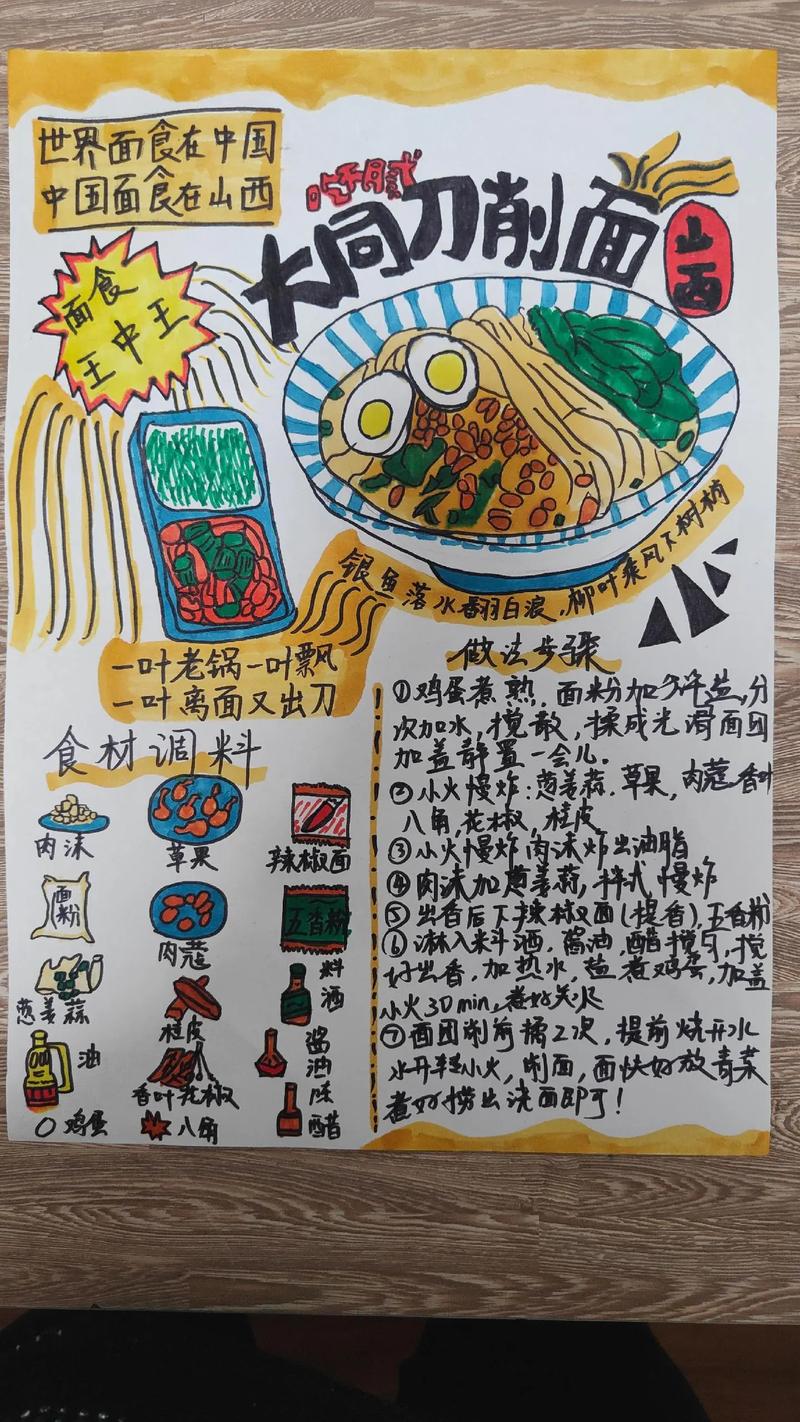 世界面食在中国
中国面食在山西
大同刀削面
山西
面食
王中王
银鱼落水翻白浪,柳叶乘风下树梢
一叶老锅一叶飘
一叶离面又出刀
食材调料
肉沫
草果
辣椒面
面粉
肉蔻
五香粉
葱姜蒜
桂皮
料酒
油
香叶花椒
酱油
鸡蛋
八角
陈醋
做法步骤
①鸡蛋煮熟,面粉加少许盐,分
次加水,搅散,揉成光滑面团
加盖静置一会儿.
②小火慢炸:葱姜蒜.草果,肉蔻,香叶
八角,花椒,桂皮
③小火慢炸肉沫炸出油脂
④肉沫加葱姜蒜,慢炸
⑤出香后下辣椒面(提香),五香粉
⑥淋入料酒,酱油,醋搅匀,搅
好出香,加热水,盐煮鸡蛋,加盖
小火30min,煮好关火
⑦面团削前揉2次,提前烧开水
水开转小火,削面,面快好放青菜
煮好捞出浇面即可!